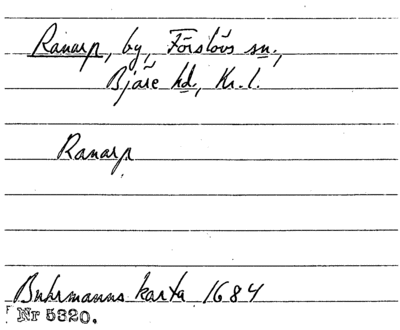 Ranarp, by, Förslövs sn.,
Bjäre hd., Kr. l.
Ranarp
Buhrmanns karta 1684
Nr 5320.